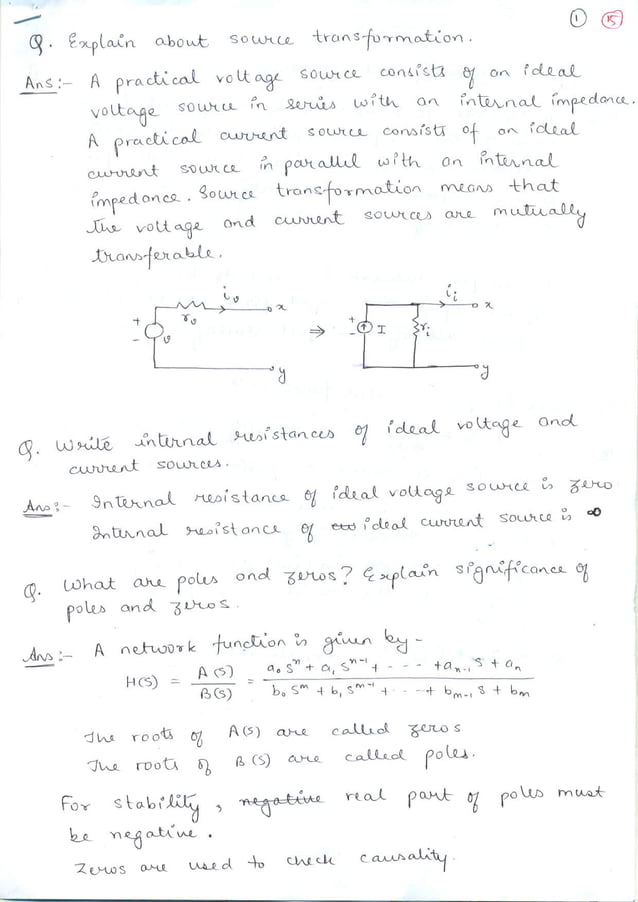 ① 15
Q. Explain about source transformation.
Ans:- A practical voltage source consists of an ideal
voltage source in series with an internal impedance.
A practical current source consists of an ideal
current source in parallel with an internal
impedance. Source transformation means that
the voltage and current sources are mutually
transferable.
+ - v r_v i_v x y ⇒ + - I r_i i_i x y
Q. Write internal resistances of ideal voltage and
current sources.
Ans:- Internal resistance of ideal voltage source is zero
Internal resistance of ideal current source is ∞
Q. What are poles and zeros? Explain significance of
poles and zeros.
Ans:- A network function is given by -
H(S) = A(S)/B(S) = (a₀sⁿ + a₁sⁿ⁻¹ + - - - + aₙ₋₁s + aₙ)/(b₀sᵐ + b₁sᵐ⁻¹ + - - + bₘ₋₁s + bₘ)
The roots of A(S) are called zeros
The roots of B(S) are called poles.
For stability, negative real part of poles must
be negative.
Zeros are used to check causality.